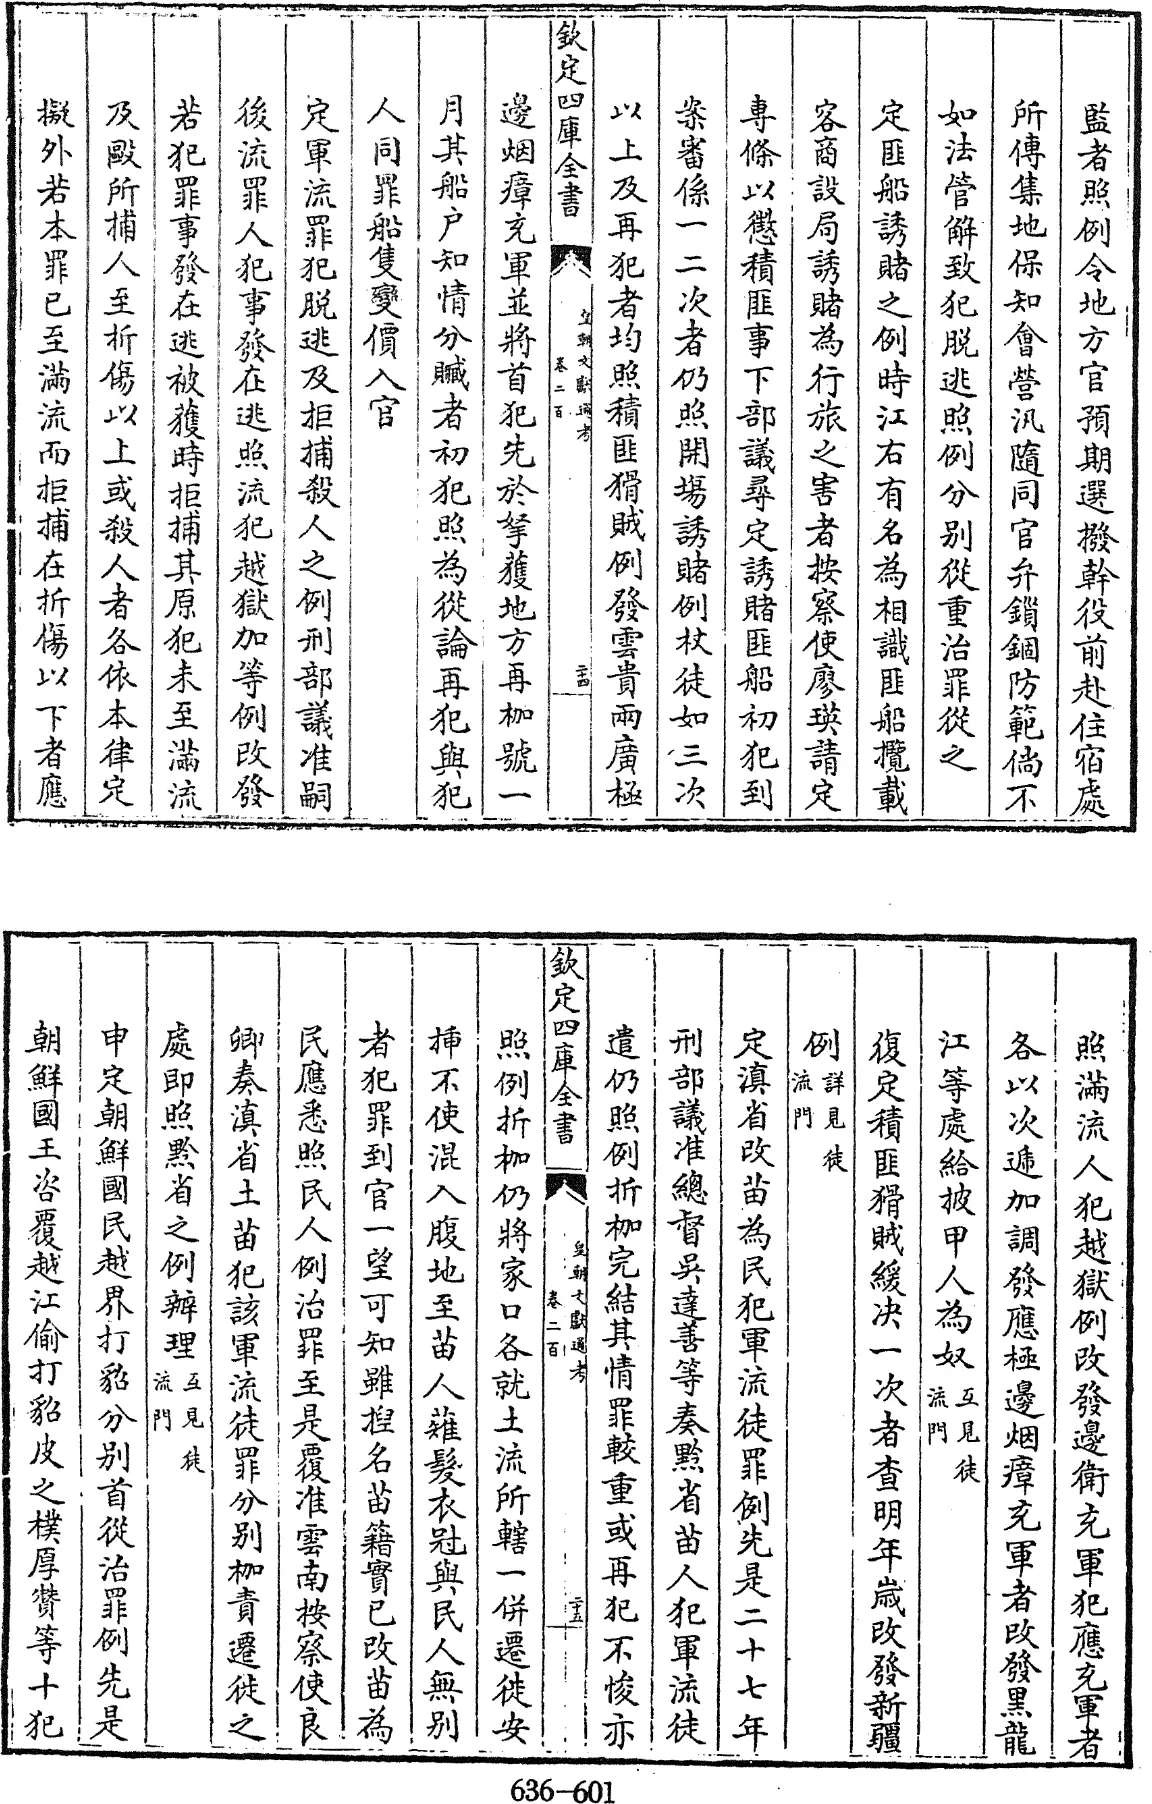 監者照例令地方官預期選撥幹役前赴住宿處
所傳集地保知會營汛隨同官弁鎖錮防範倘不
如法管解致犯脱逃照例分别從重治罪從之
定匪船誘賭之例時江右有名為相識匪船攬載
客商設局誘賭為行旅之害者按察使廖瑛請定
專條以懲積匪事下部議尋定誘賭匪船初犯到
案審係一二次者仍照開場誘賭例杖徒如三次
以上及再犯者均照積匪猾賊例發雲貴兩廣極
欽定四庫全書
皇朝文獻通考
卷二百
二十四
邊烟瘴充軍並將首犯先於拏獲地方再枷號一
月其船户知情分贓者初犯照為從論再犯與犯
人同罪船隻變價入官
定軍流罪犯脱逃及拒捕殺人之例刑部議准嗣
後流罪人犯事發在逃照流犯越獄加等例改發
若犯罪事發在逃被獲時拒捕其原犯未至滿流
及毆所捕人至折傷以上或殺人者各依本律定
擬外若本罪已至滿流而拒捕在折傷以下者應
照滿流人犯越獄例改發邊衛充軍犯應充軍者
各以次遞加調發應極邊烟瘴充軍者改發黑龍
江等處給披甲人為奴互見徒流門
復定積匪猾賊緩决一次者查明年歲改發新疆
例詳見徒流門
定滇省改苗為民犯軍流徒罪例先是二十七年
刑部議准總督吳達善等奏黔省苗人犯軍流徒
遣仍照例折枷完結其情罪較重或再犯不悛亦
欽定四庫全書
皇朝文獻通考
卷二百
二十五
照例折枷仍將家口各就土流所轄一併遷徙安
揷不使混入腹地至苗人薙髮衣冠與民人無别
者犯罪到官一望可知雖揑名苗籍實已改苗為
民應悉照民人例治罪至是覆准雲南按察使良
卿奏滇省土苗犯該軍流徒罪分别枷責遷徙之
處即照黔省之例辦理互見徒流門
申定朝鮮國民越界打貂分别首從治罪例先是
朝鮮國王咨覆越江偷打貂皮之樸厚贊等十犯
636-601